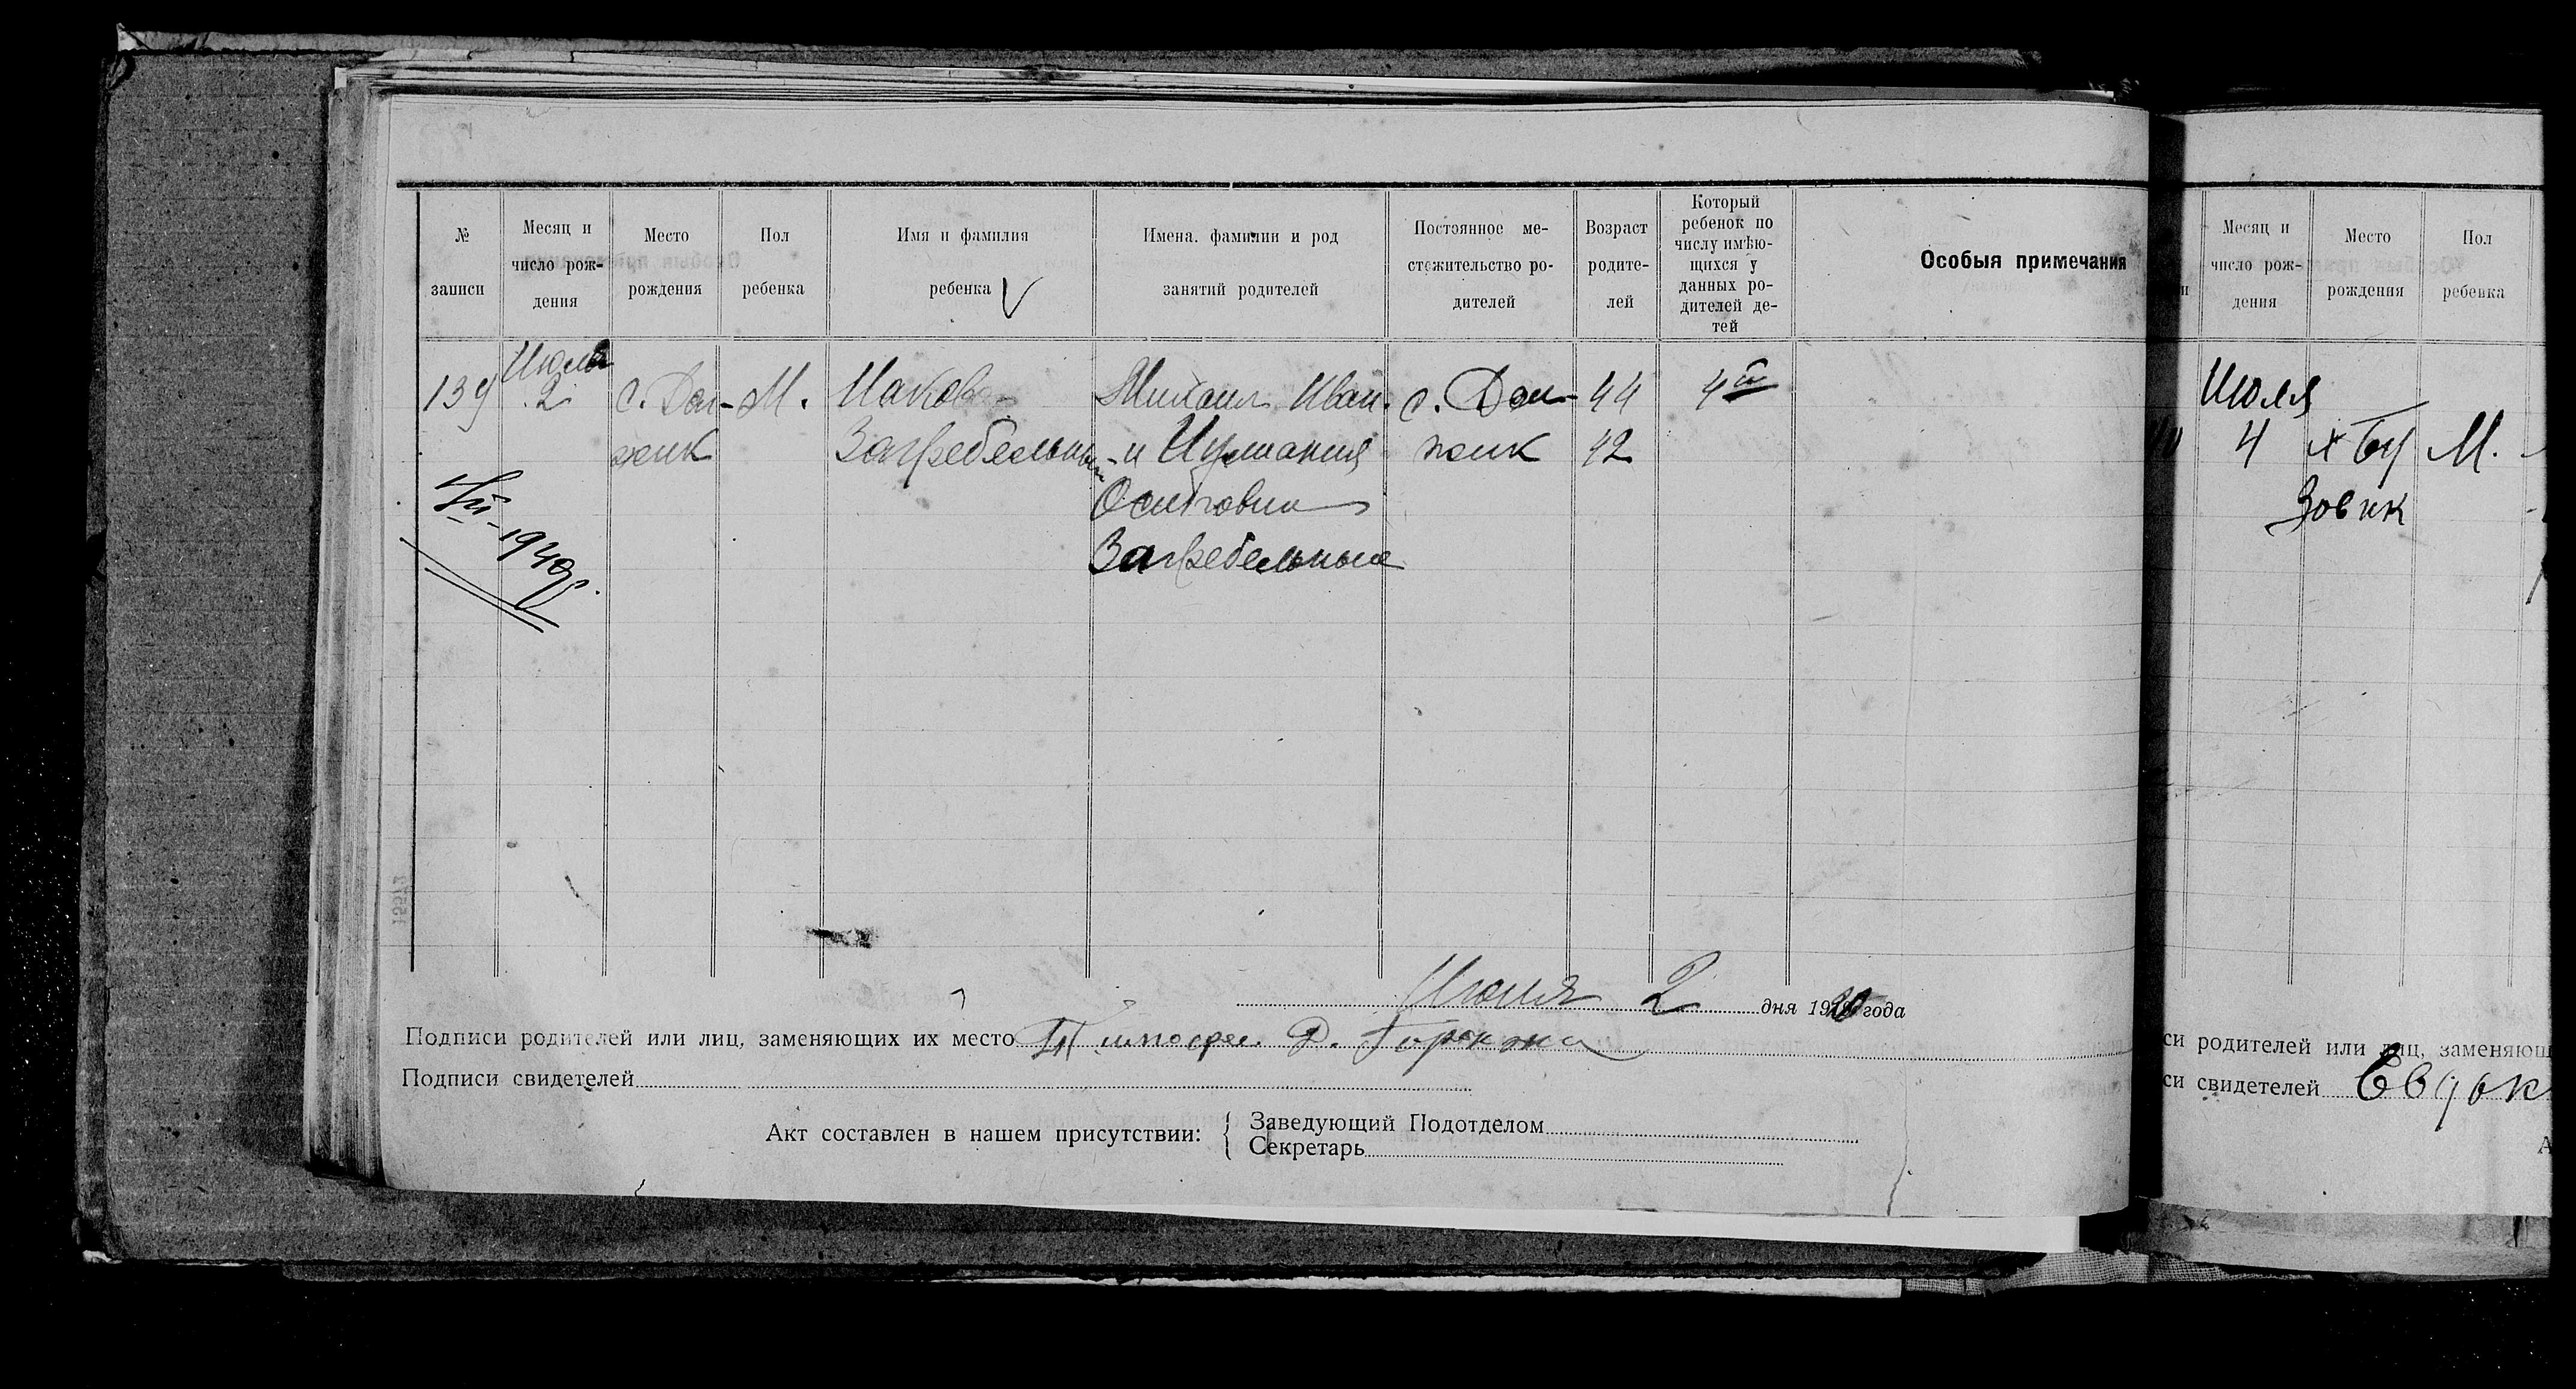 № записи
Месяц и число рож-дения
Место рождения
Пол ребенка
Имя и фамилия ребенка
Имена. фамилии и род занятий родителей
Постоянное ме-стожительство ро-дителей
Возраст родите-лей
Который ребенок по числу имѣю-щихся у данных ро-дителей де-тей
Особыя примечания
139
Июля 2
с. Дол-
жик
М.
Иаков
Загребельный
Михаил Иван.
и
Осиповна
Загребельные
с. Дол-
жик
44
42
4й
1940г.
Июля 2 дня 1920 года
Подписи родителей или лиц, заменяющих их место Тимофей
Подписи свидетелей
Акт составлен в нашем присутствии:
Заведующий Подотделом
Секретарь
Месяц и число рож-дения
Место рождения
Пол ребенка
Июля
4
М.
си родителей или лиц, заменяющ
си свидетелей